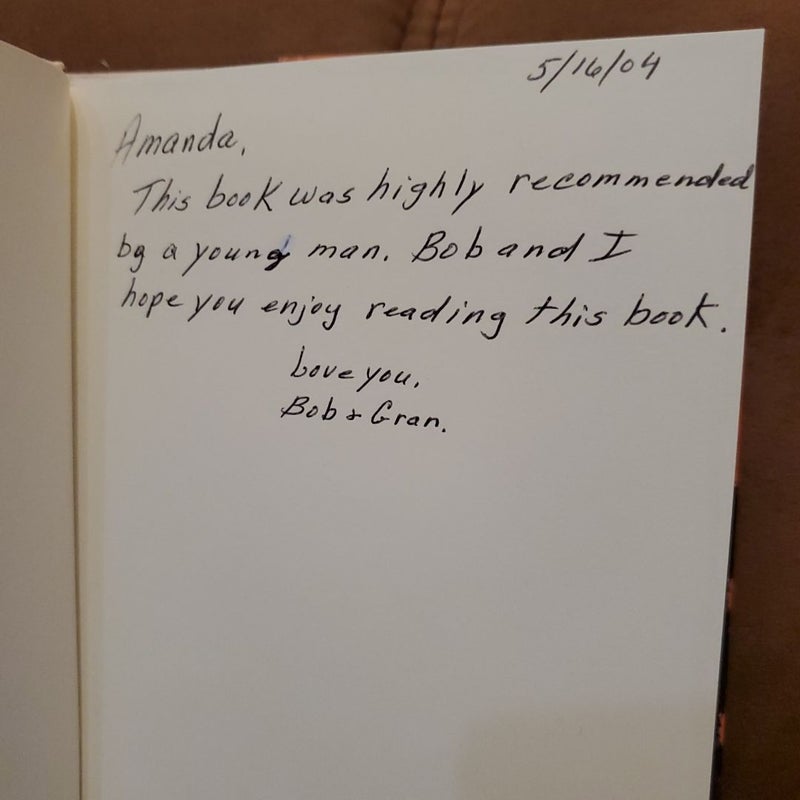 5/16/04
Amanda,
This book was highly recommended
by a young man. Bob and I
hope you enjoy reading this book.
Love you,
Bob & Gran.